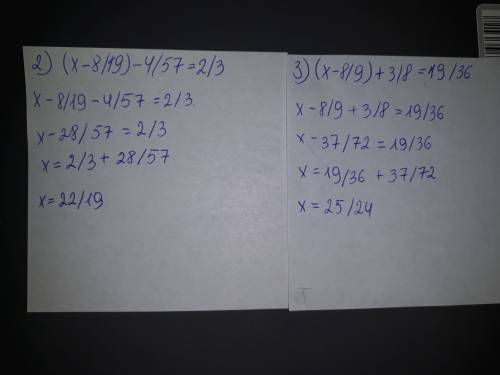 2) (x-8/19)-4/57=2/3
x-8/19-4/57=2/3
x-28/57=2/3
x=2/3+28/57
x=22/19
3)(x-8/9)+3/8=19/36
x-8/9+3/8=19/36
x-37/72=19/36
x=19/36+37/72
x=25/24